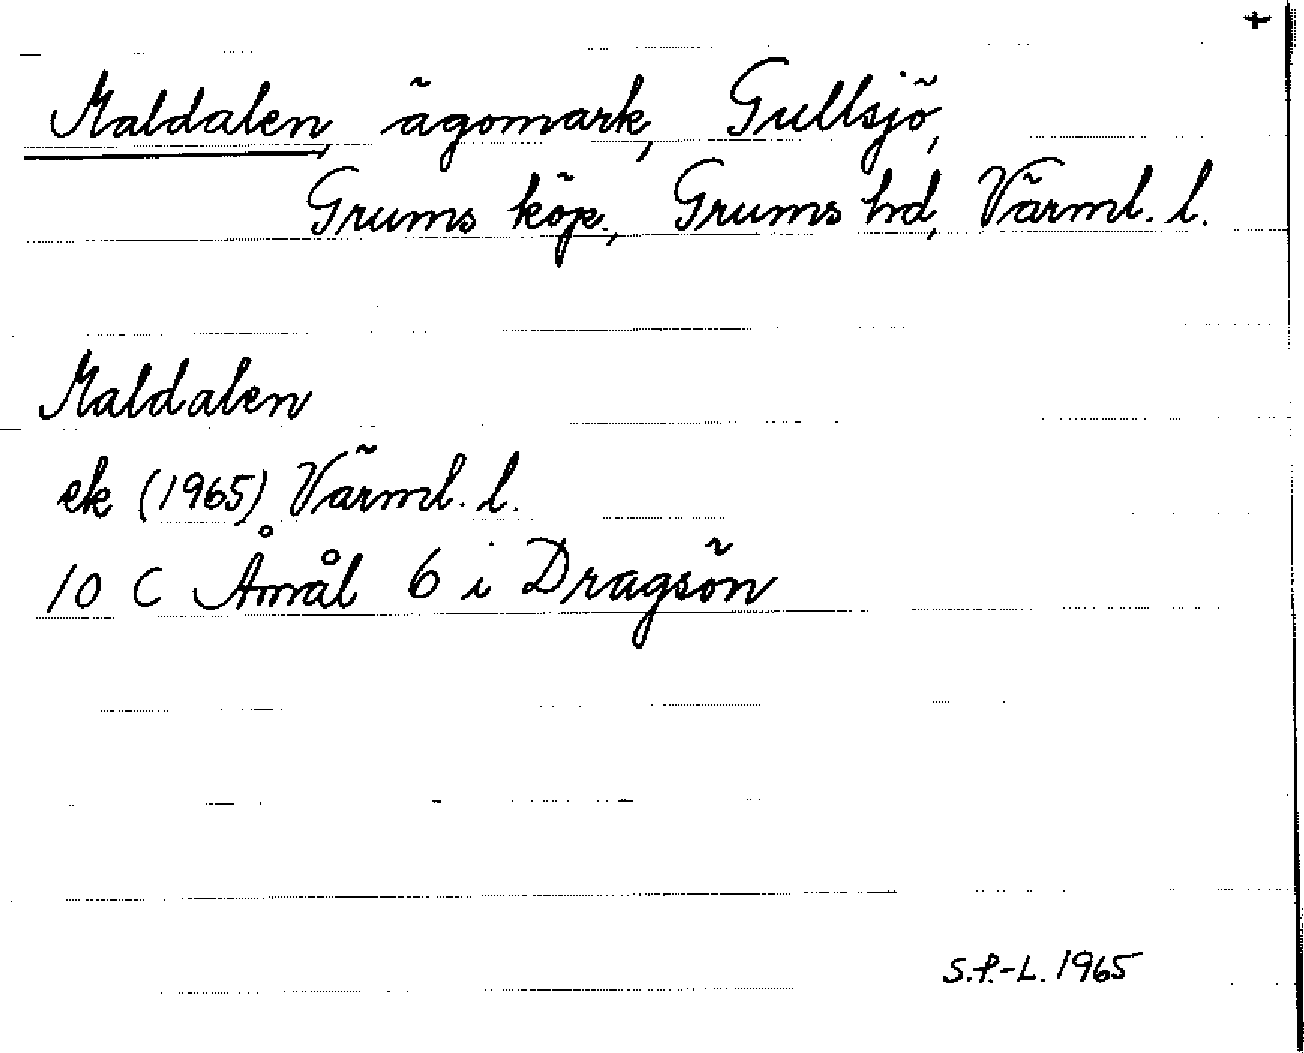 +
Maldalen, ägomark, Gullsjö,
Grums köp., Grums hd, Värml. l.
Maldalen
ek (1965) Värml. l.
10 C Åmål 6 i Dragsön
S.P.-L. 1965